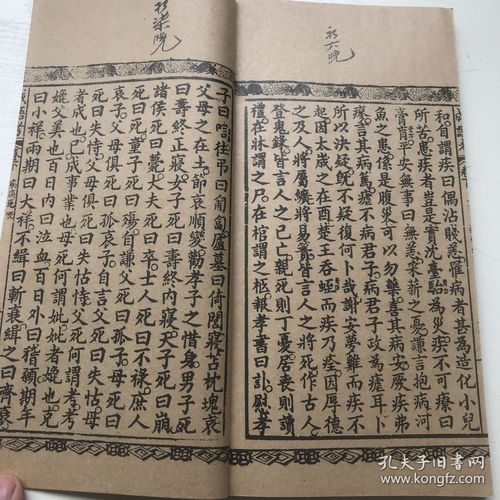 初六晚
和自謂疾曰偶沾貶恙罹病者甚為造化小兒
所苦患疾者豈是實沈臺駘為災疾不可療曰
膏肓平安無事曰無恙采薪之憂謙言抱病河
魚之患係是腹災可以勿藥喜其病安厥疾弗
瘳言其病篤瘧不病君子病君子政為瘧耳卜
所以決疑旣不疑復何卜哉謝安夢雞而疾不
起因太歲之在酉楚王吞蛭而疾乃痊因厚德
之及人將屬纊將易簀皆言人之將死作古人
登鬼籙皆言人之已亡親死則丁憂居喪則讀
禮在牀謂之尸在棺謂之柩報孝書曰訃慰孝
初柒晚
子曰唁往弔曰匍匐廬墓曰倚閭寢苫枕塊哀
父母之在土節哀順變勸孝子之惜身男子死
曰壽終正寢女子死曰壽終內寢天子死曰崩
諸侯死曰薨大夫死曰卒士人死曰不祿庶人
死曰死童子死曰殤自謙父死曰孤子母死曰
哀子父母俱死曰孤哀子自言父死曰失怙母
死曰失恃父母俱死曰失怙恃父死何謂考考
者成也已成事業也母死何謂妣妣者媲也克
媲父美也百日內曰泣血百日外曰稽顙期年
曰小祥兩期曰大祥不緝曰斬衰緝之曰齊衰
孔夫子旧书网
www.kongfz.com